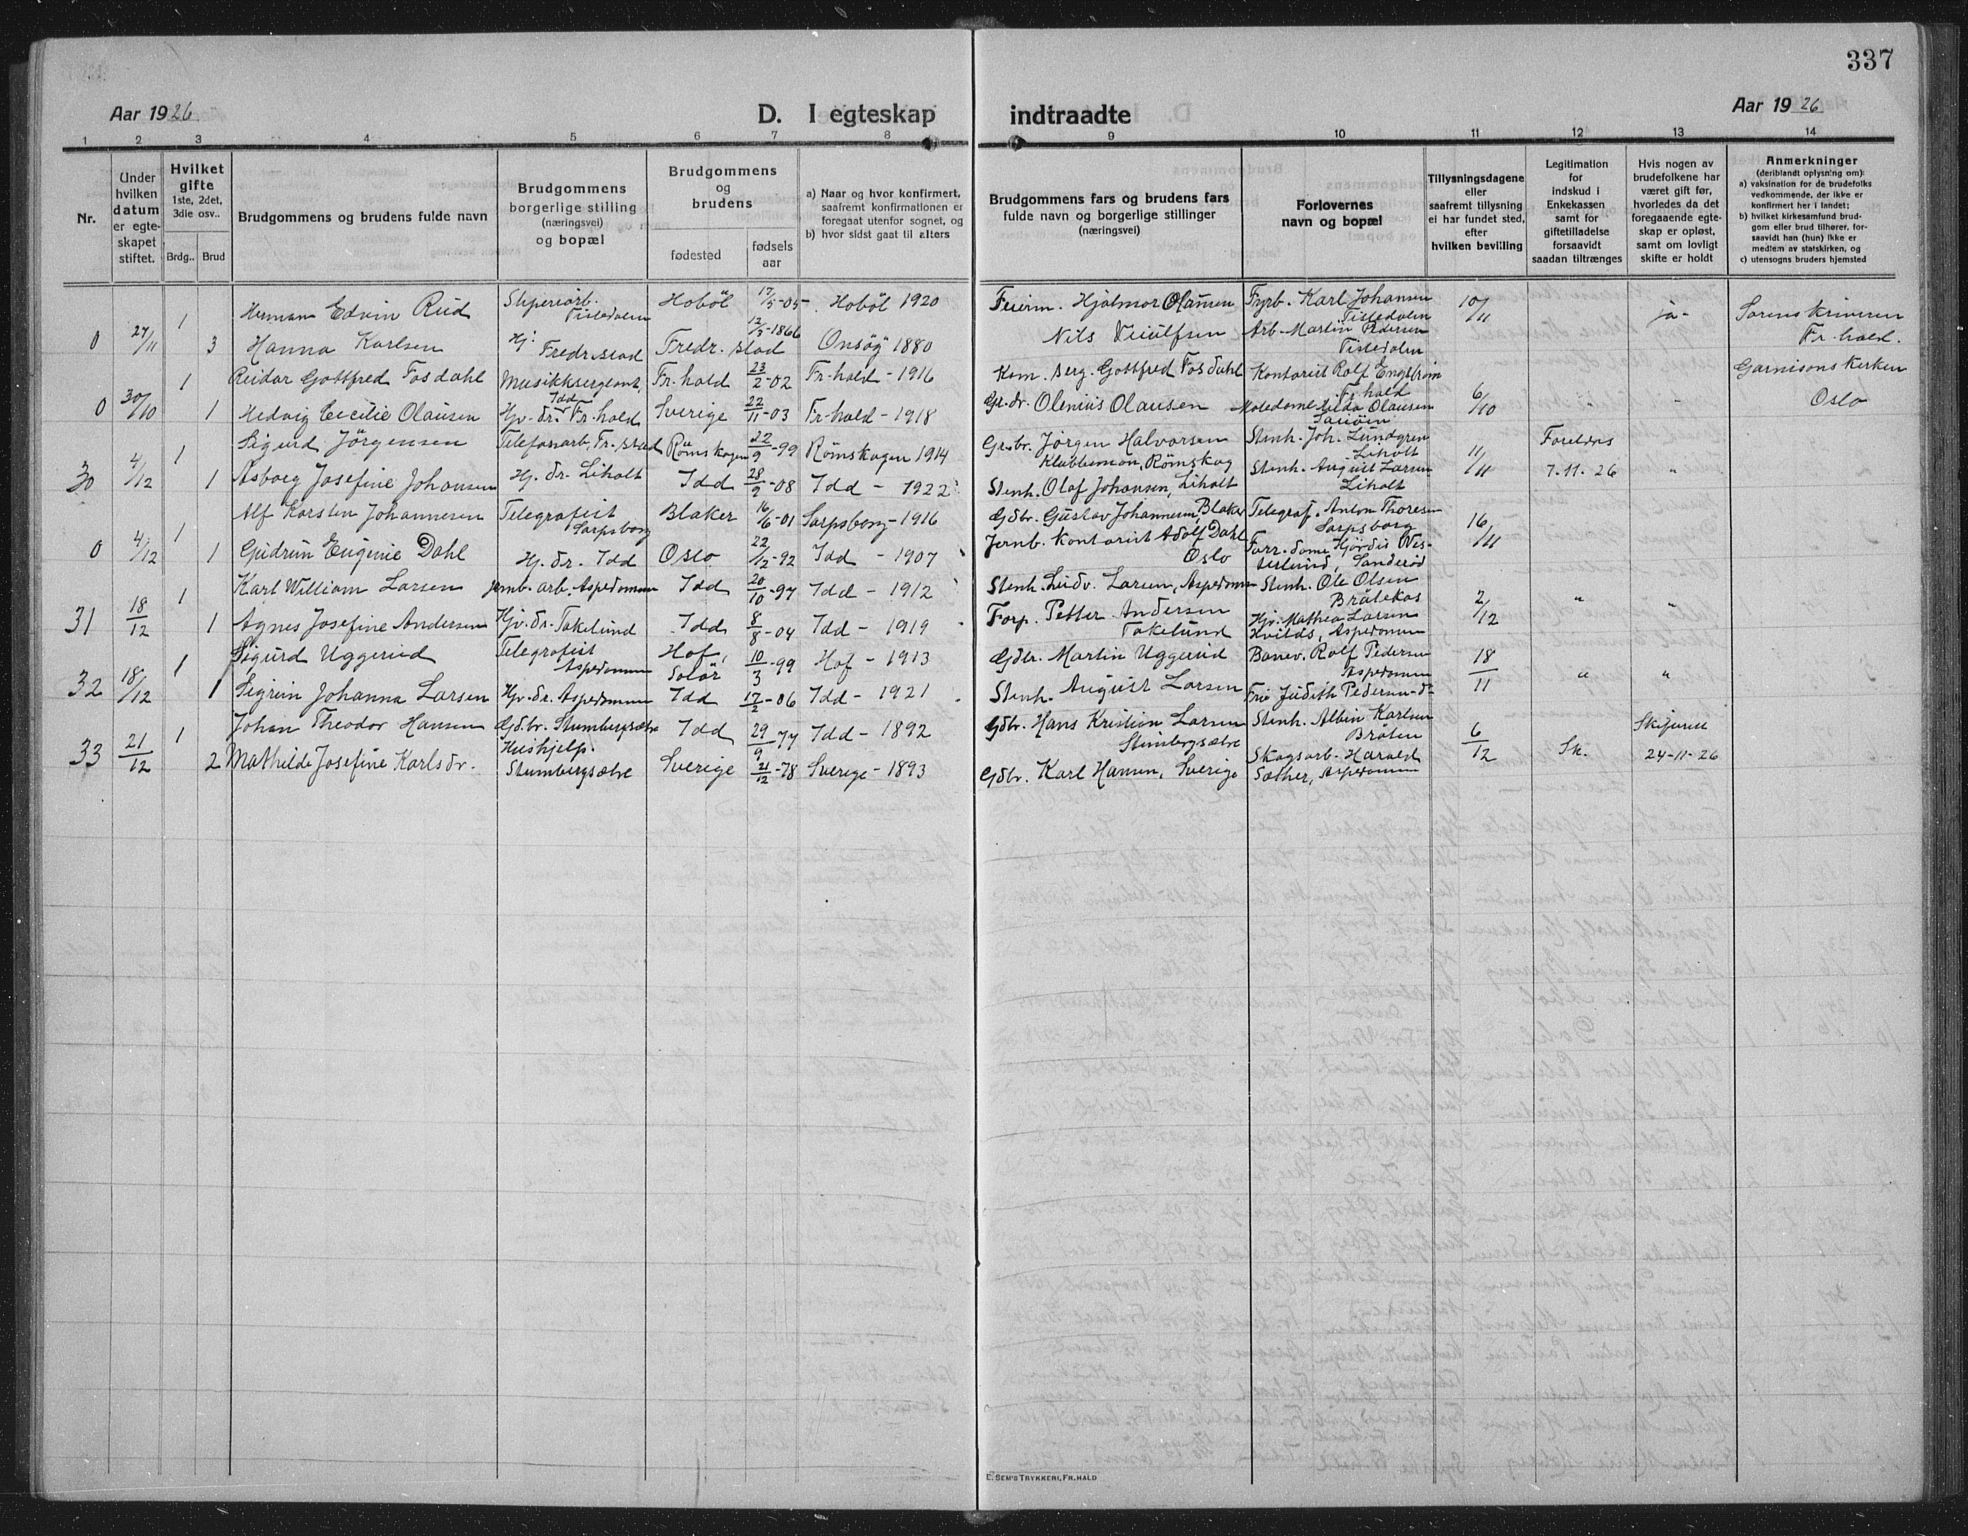 337
Aar 1926.
D. I egteskap indtraadte
Aar 1926
1 2 3 4 5 6 7 8 9 10 11 12 13 14
Nr.
Under hvilken datum er egteskapet stiftet.
Hvilket gifte 1ste, 2det, 3die osv..
Brdg.. Brud
Brudgommens og brudens fulde navn
Brudgommens borgerlige stilling (næringsvei) og bopæl
Brudgommens og brudens
fødested
fødsels aar
a) Naar og hvor konfirmert, saafremt konfirmationen er foregaat utenfor sognet, og
b) hvor sidst gaat til alters
Brudgommens fars og brudens fars fulde navn og borgerlige stillinger (næringsvei)
Forlovernes navn og bopæl
Tillysningsdagene eller saafremt tillysning ei har fundet sted, efter hvilken bevilling
Legitimation for indskud i Enkekassen samt for giftetilladelse forsaavidt saadan tiltrænges
Hvis nogen av brudefolkene har været gift før, hvorledes da det foregaaende egteskap er opløst, samt om lovligt skifte er holdt
Anmerkninger (deriblandt oplysning om):
a) vaksination for de brudefolks vedkommende, der ikke er konfirmert her i landet;
b) hvilket kirkesamfund brudgom eller brud tilhører, forsaavidt han (hun) ikke er medlem av statskirken, og
c) utensogns bruders hjemsted
1 Herman Edvin Rud Sliperiarb. Tistedalen Hobøl 17/5-05 Hobøl 1920 Hjalmar Olausen Fyrb. Karl Johansen Tistedalen 10/11 ja - Sorenskriveren
0 27/11 3 Hanna Karlsen Hj. Fredr.stad Fredr.stad 12/3-1866 Onsøy 1880 Nils Arb. Martin Pedersen Tistedalen Fr.hald.
1 Reidar Gottfred Fosdahl Musikksergeant, Fr.hald 23/2-02 Fr.hald - 1916 Kom. Berg. Gottfred Fosdahl Kontorist Rolf Engstrøm Fr.hald Garnisonskirken
0 30/10 1 Hedvig Cecilie Olausen Hjv. dr. Idd Fr.hald Sverige 22/11-03 Fr.hald - 1918 Olenius Olausen Olausen 6/10 " " Oslo
1 Sigurd Jørgensen Telefonarb. Fr.stad Rømskogen 22/9-99 Rømskogen 1914 Grbr. Jørgen Halvorsen Stenh. Joh. Lundgren Liholt Foreldres
30 4/12 1 Asborg Josefine Johansen Hj. dr. Liholt Idd 28/9-08 Idd - 1922 Rømskog Stenh. Olaf Johansen, Liholt Stenh. August Larsen Liholt 11/11 7.11.26 "
1 Alf Karsten Johannesen Telegrafist Sarpsborg Blaker 16/6-01 Sarpsborg - 1916 Gdbr. Gustav Johannesen, Blaker Telegraf. Anton Thoresen Sarpsborg 16/11
0 4/12 1 Gudrun Eugenie Dahl Hj. dr. Idd Oslo 22/12-92 Idd - 1907 Jernb. kontorist Adolf Dahl Oslo
1 Karl William Larsen Jernb. arb. Aspedammen Idd 20/10-97 Idd - 1912 Stenh. Ludv. Larsen, Aspedammen Stenh. Ole Olsen Bråtekas
31 18/12 1 Agnes Josefine Andersen Hjv. dr. Takelund Idd 8/8-04 Idd - 1919 Forp. Petter Andersen Takelund Hjv. Mathea Larsen Aspedammen 2/12 " "
1 Sigurd Uggerud Telegrafist Aspedammen Hof, Solør 10/3-99 Hof - 1913 Gdbr. Martin Uggerud Banev. Rolf Pedersen Aspedammen
32 18/12 1 Sigrun Johanna Larsen Hjv. dr. Aspedammen Idd 17/2-06 Idd - 1921 Stenh. August Larsen Frø Judith Pedersen - ds 18/11 " "
1 Johan Theodor Hansen Gdbr. Stumbergsætre Idd 29/9-77 Idd - 1892 Gdbr. Hans Kristian Larsen Stumbergsætre Stenh. Albin Karlsen Bråten
33 21/12 2 Mathilde Josefine Karlsdr. Hushjelp. Stumbergsætre Sverige 21/12-78 Sverige - 1893 Gdbr. Karl Hansen, Sverige Skogsarb. Harald Sæther, Aspedammen 6/12 Sk. 24-11-26
E. SEM'S TRYKKERI, FR.HALD